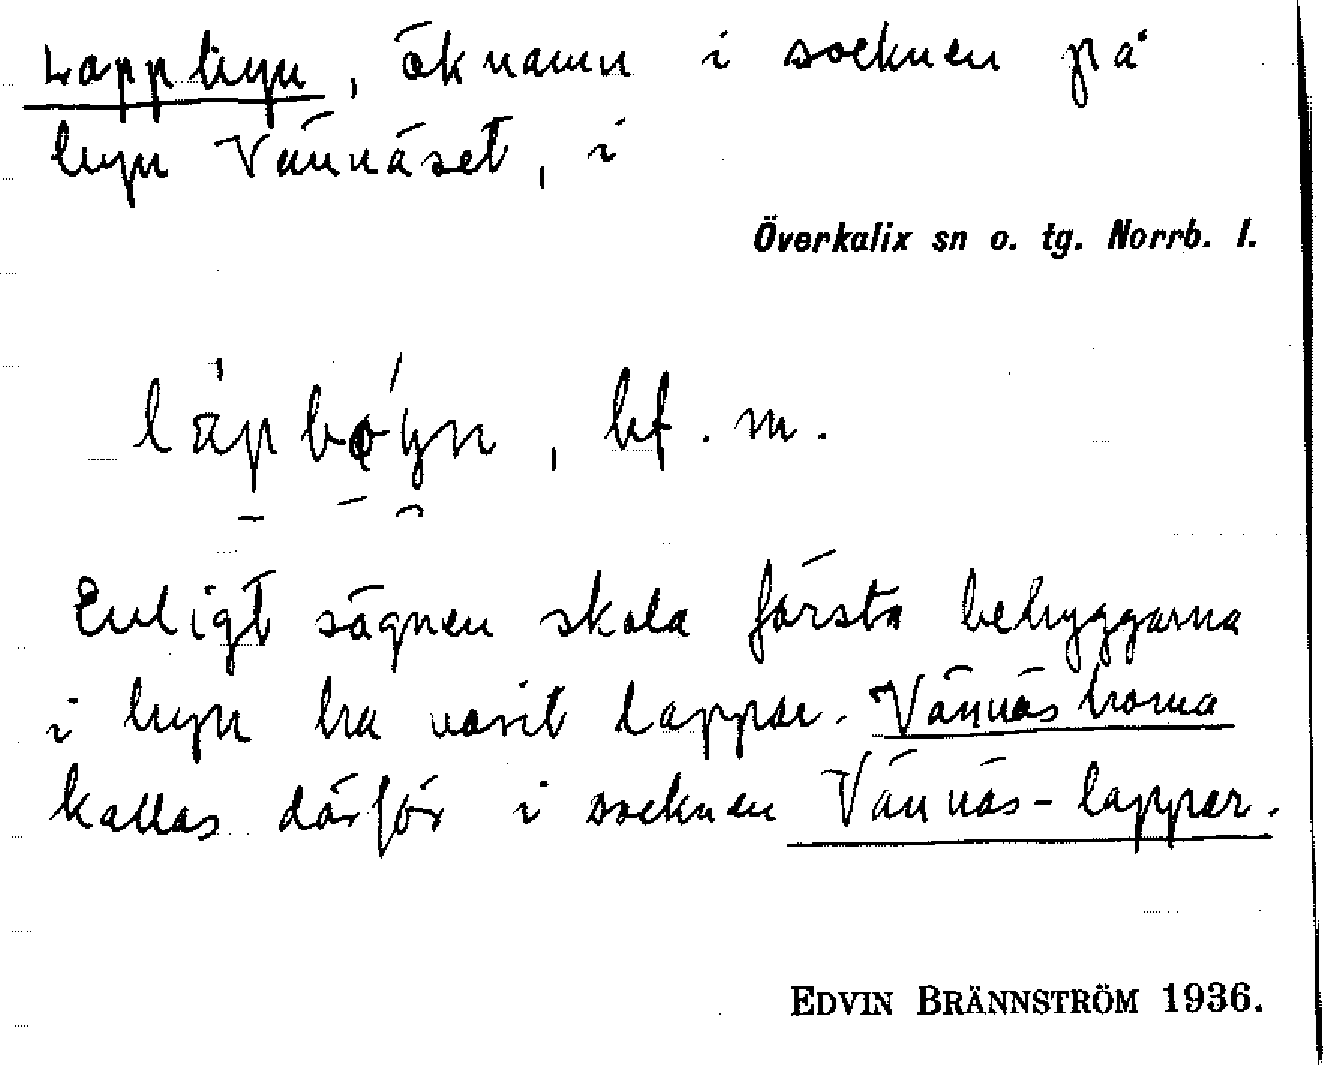 Lappbyn, öknamn i socknen på
byn Vännäset, i
Överkalix sn o. tg. Norrb. l.
låpbo̜yn, bf. m.
Enligt sägnen skola första bebyggarna
i byn ha varit lappar. Vännäsborna
kallas därför i socknen Vännäs-lappar.
EDVIN BRÄNNSTRÖM 1936.